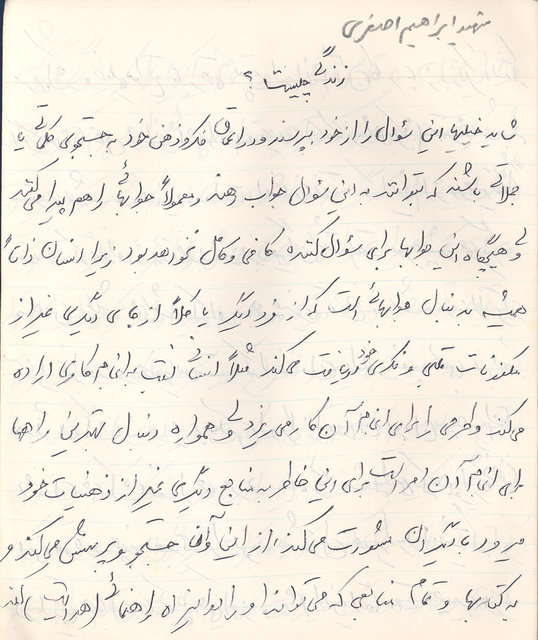 شهید ابراهیم اصغری
زندگی چیست؟
شاید خیلیها این سؤال را از خود بپرسند و در اعماق فکر و ذهن خود به جستجوی کلماتی یا
جملاتی باشند که بتوانند به این سؤال جواب دهند و معمولاً جوابهائی را هم پیدا می‌کنند
ولی هیچگاه این جوابها برای سؤال کننده کافی و کامل نخواهد بود زیرا انسان ذاتاً
همیشه به دنبال جوابهائی است که از فرد دیگر یا کلاً از جای دیگری غیر از
مکنونات قلبی و فکری خود دریافت می‌کند مثلاً انسانی نسبت به انجام کاری اراده
می‌کند و طرحی را برای انجام آن کار می‌ریزد ولی همواره دنبال بهترین راهها
برای انجام آن امر است برای این خاطر به منابع دیگری غیر از ذهنیات خود
میرود با دیگران مشورت می‌کند، از این و آن جستجو و پرسش می‌کند و
به کتابها و تمام منابعی که می‌تواند او را در این راه راهنمائی (هدایت) کند